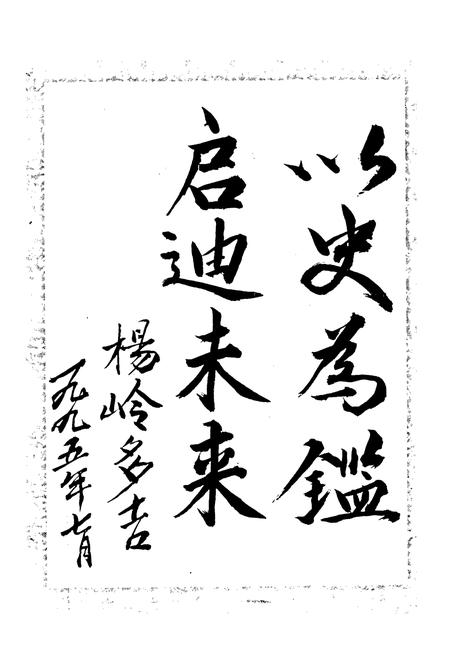 以史為鑑
启迪未来
楊岭多吉
一九九五年七月